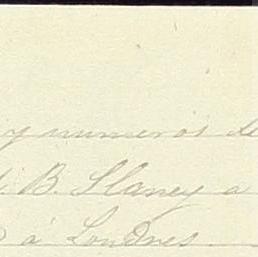 y numeros de
B. Slaney a
a Londres